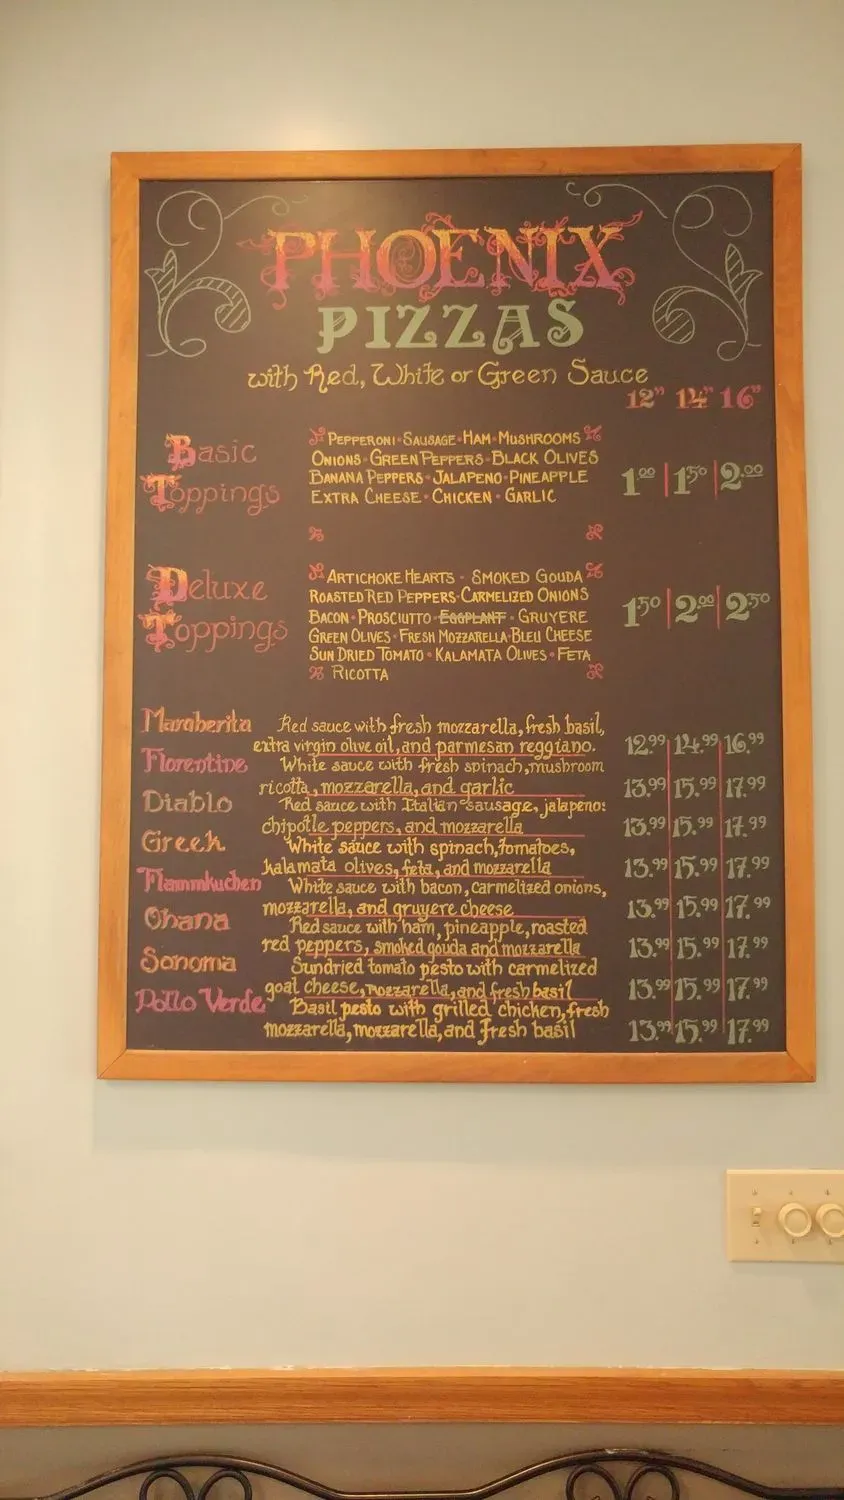 PHOENIX
PIZZAS
with Red, White or Green Sauce
12" 14" 16"
Basic Toppings
PEPPERONI · SAUSAGE · HAM · MUSHROOMS
ONIONS · GREEN PEPPERS · BLACK OLIVES
BANANA PEPPERS · JALAPENO · PINEAPPLE
EXTRA CHEESE · CHICKEN · GARLIC
1.00 | 1.50 | 2.00
Deluxe Toppings
ARTICHOKE HEARTS · SMOKED GOUDA
ROASTED RED PEPPERS · CARMELIZED ONIONS
BACON · PROSCIUTTO · EGGPLANT · GRUYERE
GREEN OLIVES · FRESH MOZZARELLA · BLEU CHEESE
SUN DRIED TOMATO · KALAMATA OLIVES · FETA
RICOTTA
1.50 | 2.00 | 2.50
Margherita Red sauce with fresh mozzarella, fresh basil,
extra virgin olive oil, and parmesan reggiano. 12.99 14.99 16.99
Florentine White sauce with fresh spinach, mushroom
ricotta, mozzarella, and garlic 13.99 15.99 17.99
Diablo Red sauce with Italian sausage, jalapeno:
chipotle peppers, and mozzarella 13.99 15.99 17.99
Greek White sauce with spinach, tomatoes,
kalamata olives, feta, and mozzarella 13.99 15.99 17.99
Flammkuchen White sauce with bacon, carmelized onions,
mozzarella, and gruyere cheese 13.99 15.99 17.99
Ohana Red sauce with ham, pineapple, roasted
red peppers, smoked gouda and mozzarella 13.99 15.99 17.99
Sonoma Sundried tomato pesto with carmelized
goat cheese, mozzarella, and fresh basil 13.99 15.99 17.99
Pollo Verde Basil pesto with grilled chicken, fresh
mozzarella, mozzarella, and fresh basil 13.99 15.99 17.99